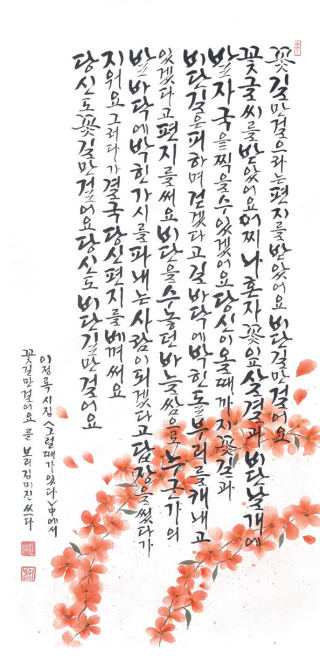 꽃길만 걸으라는 편지를 받았어요 비단길만 걸어요
꽃글씨를 받았어요 어찌 나 혼자 꽃잎 살결과 비단 날개에
발자국을 찍을 수 있겠어요 당신이 올 때까지 꽃길과
비단길은 피하며 걷겠다고 길바닥에 박힌 돌부리를 캐내고
있겠다고 편지를 써요 비단을 수놓던 바늘 쌈으로 누군가의
발바닥에 박힌 가시를 파내는 사람이 되겠다고 답장을 썼다가
지워요 그러다가 결국 당신 편지를 베껴 써요
당신도 꽃길만 걸어요 당신도 비단길만 걸어요
이정록 시집 <그럴 때가 있다> 中에서
꽃길만 걸어요 를 보리 김미진 쓰다